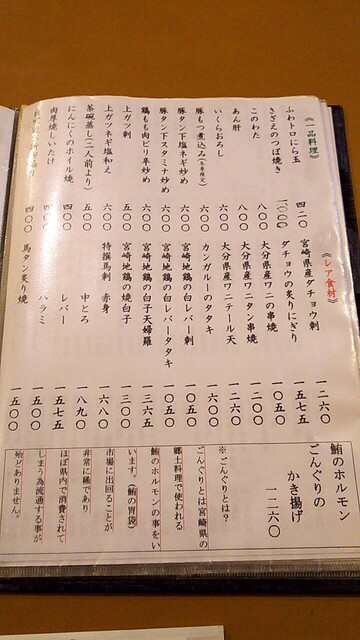 《一品料理》
ふわトロにら玉 四二〇
さざえのつぼ焼き
このわた 八〇〇
あん肝 八〇〇
いくらおろし 六〇〇
豚もつ煮込み(冬季限定) 六〇〇
豚タン下塩ネギ炒め 六〇〇
豚タン下スタミナ炒め 六〇〇
鶏もも肉ピリ辛炒め 六〇〇
上ガツ刺 五〇〇
上ガツネギ塩和え 六〇〇
茶碗蒸し(二人前より) 五〇〇
にんにくのホイル焼 四〇〇
肉厚焼しいたけ 四〇〇
四〇〇
《レア食材》
宮崎県産ダチョウ刺 一二六〇
ダチョウの炙りにぎり 一五七五
大分県産ワニの串焼 一〇五〇
大分県産ワニタン串焼 一二〇〇
大分県産ワニテール天 一二六〇
カンガルーのタタキ 一六〇〇
宮崎地鶏の白レバー刺 一〇五〇
宮崎地鶏の白レバータタキ 一〇五〇
宮崎地鶏の白子天婦羅 一三六五
宮崎地鶏の焼白子 一三〇〇
特撰馬刺 赤身 一六八〇
中とろ 一八九〇
レバー 一五七五
ハラミ 一五〇〇
馬タン炙り焼 一五〇〇
鮪のホルモン
ごんぐりの
かき揚げ
一二六〇
※ごんぐりとは?
ごんぐりとは宮崎県の
郷土料理で使われる
鮪のホルモンの事をい
います。(鮪の胃袋)
市場に出回ることが
非常に稀であり
ほぼ県内で消費されて
しまう為流通する事が
殆どありません。